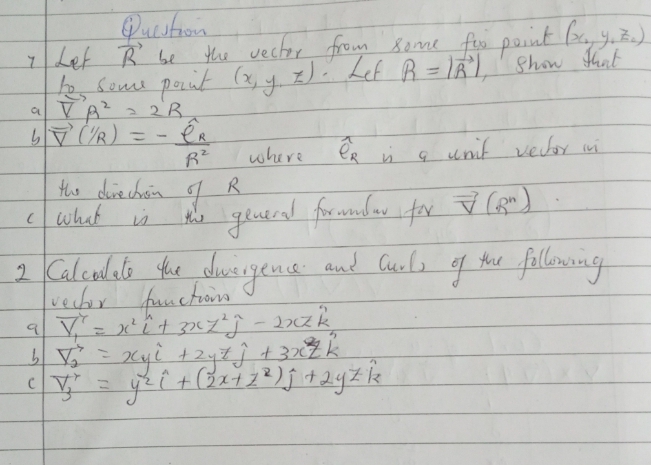 Question
1 Let R⃗ be the vector from some fix point (x₀, y₀, z₀)
to some point (x, y, z). Let R = |R⃗|, show that
a ∇⃗ R² = 2R
b ∇⃗ (1/R) = - ê_R / R² where ê_R is a unit vector in
the direction of R
c what is the general formular for ∇⃗ (Rⁿ).
2 Calculate the divergence and Curls of the following
vector functions
a V⃗₁ = x² î + 3xz² ĵ - 2xz k̂
b V⃗₂ = xy î + 2yz ĵ + 3xz k̂
c V⃗₃ = y² î + (2x + z²) ĵ + 2yz k̂